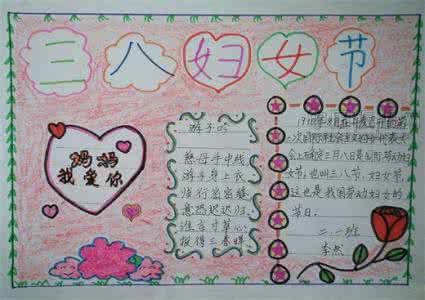 三八妇女节
妈妈
我爱你
游子吟
慈母手中线
游子身上衣
临行密密缝
意恐迟迟归
谁言寸草心
报得三春晖
1910年8月在丹麦召开的第
二次国际社会主义妇女代表大
会上确定三月八日是国际劳动妇
女节,也叫三八、妇女节,
这也是我国劳动妇女的
节日。
二.一班
李然